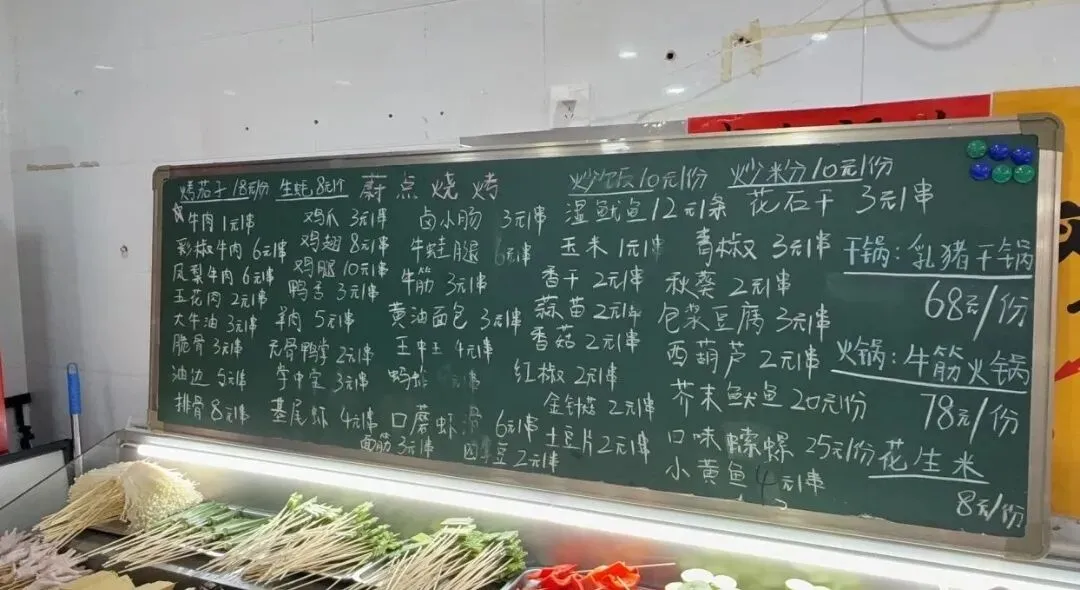 烤茄子 18元/份 生蚝 8元/个 蔚点烧烤 炒饭 10元/份 炒米粉 10元/份
牛肉 1元/串 鸡爪 3元/串 卤小肠 3元/串 湿鱿鱼 12元/条 花石干 3元/串
彩椒牛肉 6元/串 鸡翅 8元/串 牛蛙腿 6元/串 玉米 1元/串 青椒 3元/串
凤梨牛肉 6元/串 鸡腿 10元/串 牛筋 3元/串 香干 2元/串 秋葵 2元/串
五花肉 2元/串 鸭舌 3元/串 黄油面包 3元/串 蒜苗 2元/串 包浆豆腐 3元/串
大牛油 3元/串 羊肉 5元/串 王中王 4元/串 香菇 2元/串 西葫芦 2元/串
脆骨 3元/串 无骨鸭掌 2元/串 蚂蚱 元/串 红椒 2元/串 芥末鱿鱼 20元/份
油边 5元/串 掌中宝 3元/串 金针菇 2元/串 口味嗦螺 25元/份
排骨 8元/串 基尾虾 4元/串 口蘑虾滑 6元/串 土豆片 2元/串 小黄鱼 4元/串
面筋 3元/串 四季豆 2元/串
干锅：乳猪干锅
68元/份
火锅：牛筋火锅
78元/份
花生米
8元/份